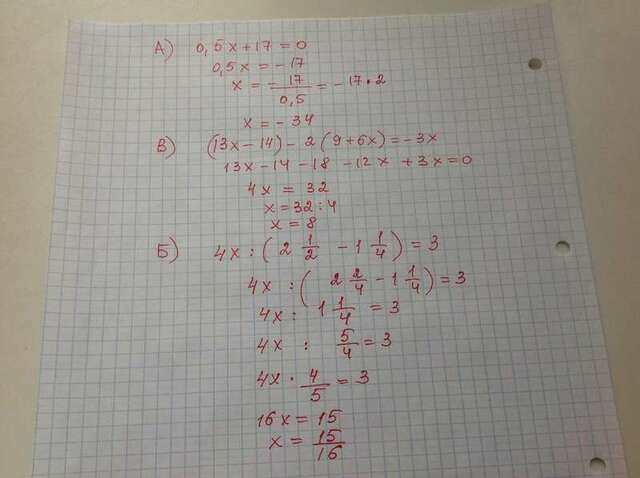 А) 0,5x+17=0
0,5x=-17
x=-17/0,5=-17•2
x=-34
В) (13x-14)-2(9+6x)=-3x
13x-14-18-12x+3x=0
4x=32
x=32:4
x=8
Б) 4x:(2 1/2-1 1/4)=3
4x:(2 2/4-1 1/4)=3
4x:1 1/4=3
4x:5/4=3
4x·4/5=3
16x=15
x=15/16